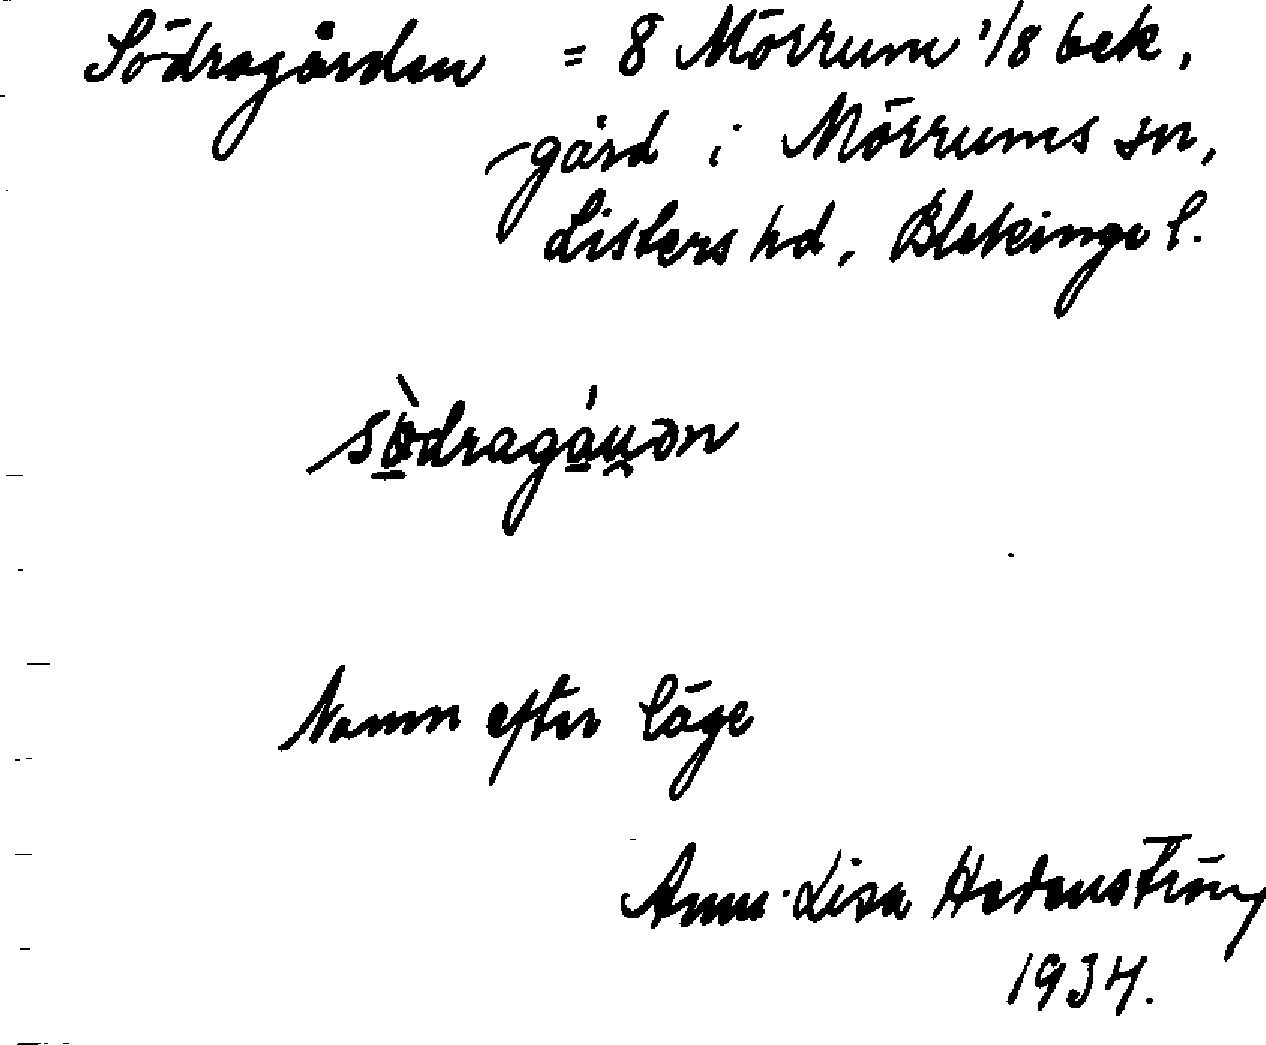 Södragården = 8 Mörrum 1/8 bek,
gård i Mörrums sn,
Listers hd, Blekinge l.
sö̀dragá̊u̯ən
Namn efter läge
Anna-Lisa Hedenström
1934.